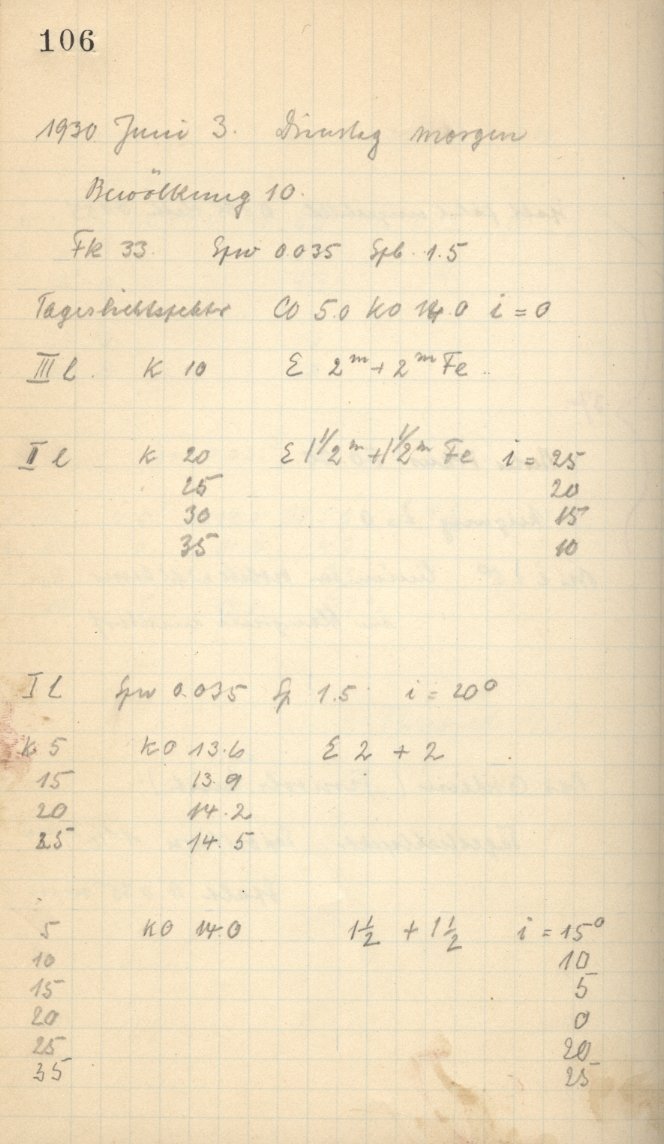 106
1930 Juni 3. Dienstag morgen
Bewölkung 10.
Fk 33. Spw 0.035 Spb. 1.5
Tageslichtspektr CO 5.0 KO 14.0 i = 0
III l. K 10 E 2ᵐ + 2ᵐ Fe
II l K 20 E 1 1/2ᵐ + 1 1/2ᵐ Fe i = 25
25 20
30 15
35 10
I l Spw 0.035 Sp 1.5 i = 20°
K 5 KO 13.6 E 2 + 2
15 13.9
20 14.2
25 14.5
5 KO 14.0 1 1/2 + 1 1/2 i = 15°
10 10
15 5
20 0
25 20
35 25